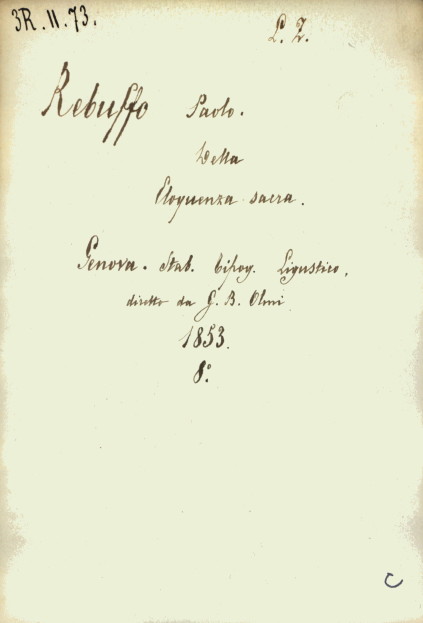 3R. II. 73.
L. Z.
Rebuffo Paolo.
Della
Eloquenza sacra.
Genova. Stab. Tipog. Ligustico,
diretto da G. B. Olmi
1853.
8.°
C